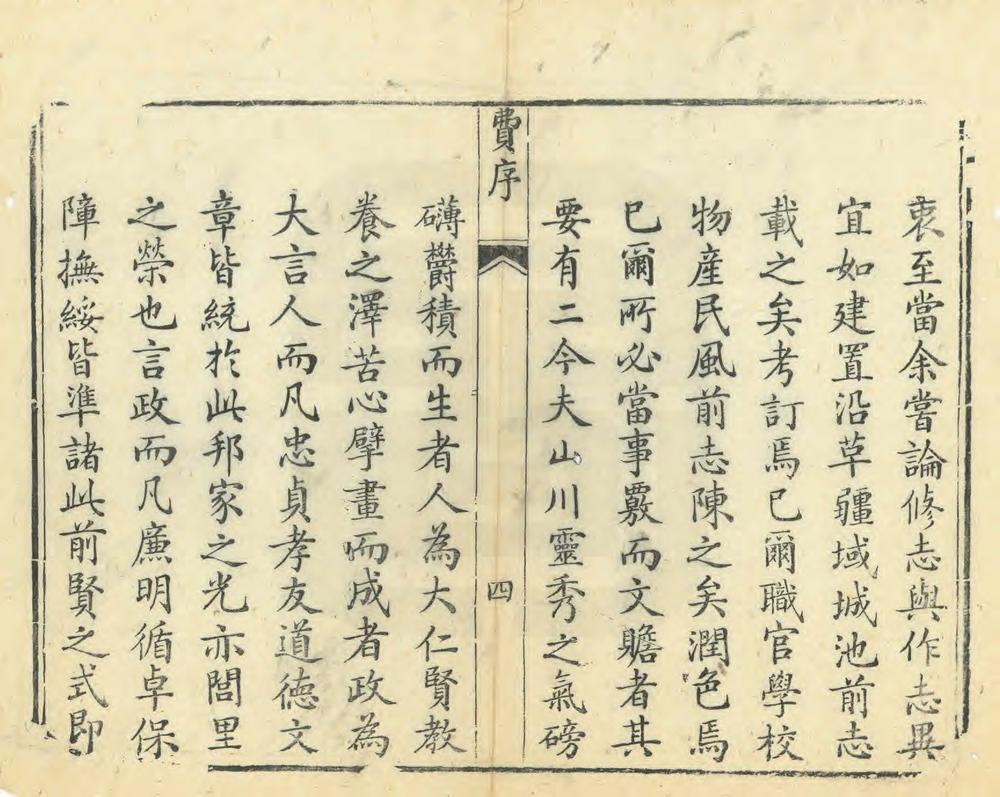 衷至當余嘗論修志與作志異
宜如建置沿革疆域城池前志
載之矣考訂焉已爾職官學校
物産民風前志陳之矣潤色焉
已爾所必當事覈而文贍者其
要有二今夫山川靈秀之氣磅
費序
四
礴欝積而生者人為大仁賢教
養之澤苦心擘畫而成者政為
大言人而凡忠貞孝友道德文
章皆統於此邦家之光亦閭里
之榮也言政而凡廉明循卓保
障撫綏皆準諸此前賢之式即